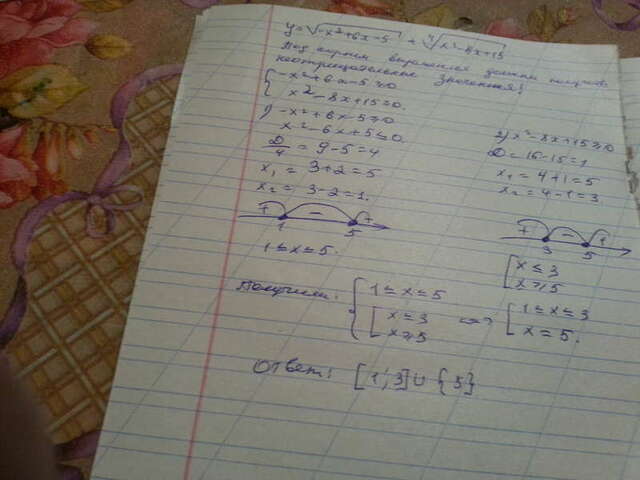 y=√-x²+6x-5 + ∜x²-8x+15
Под корнем выражения должны получать
неотрицательные значения!
{ -x²+6x-5≥0
x²-8x+15≥0.
1) -x²+6x-5≥0
x²-6x+5≤0
D/4 = 9-5=4
x₁ = 3+2=5
x₂ = 3-2=1.
+ - +
1 5
1≤x≤5.
2) x²-8x+15≥0
D=16-15=1
x₁=4+1=5
x₂=4-1=3
+ - +
3 5
[ x≤3
x≥5
Получили: { 1≤x≤5
[ x≤3
x≥5
=> [ 1≤x≤3
x=5.
Ответ: [1;3]∪{5}